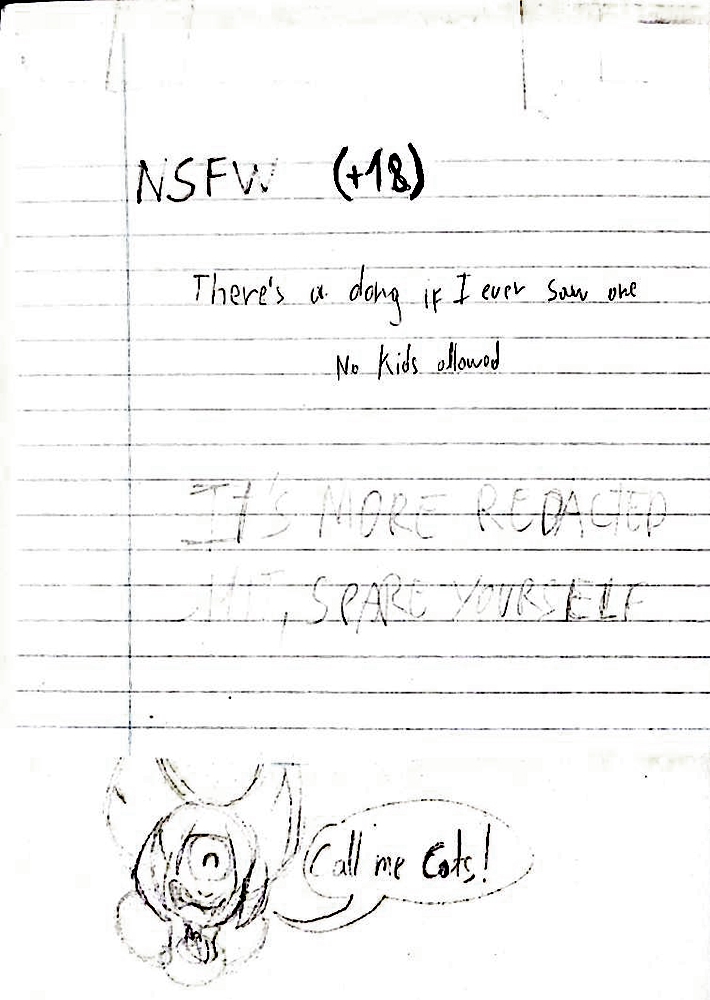 NSFW (+18)
There's a dong if I ever saw one
No kids allowed
IT'S MORE REDACTED
SPARE YOURSELF
Call me Cots!